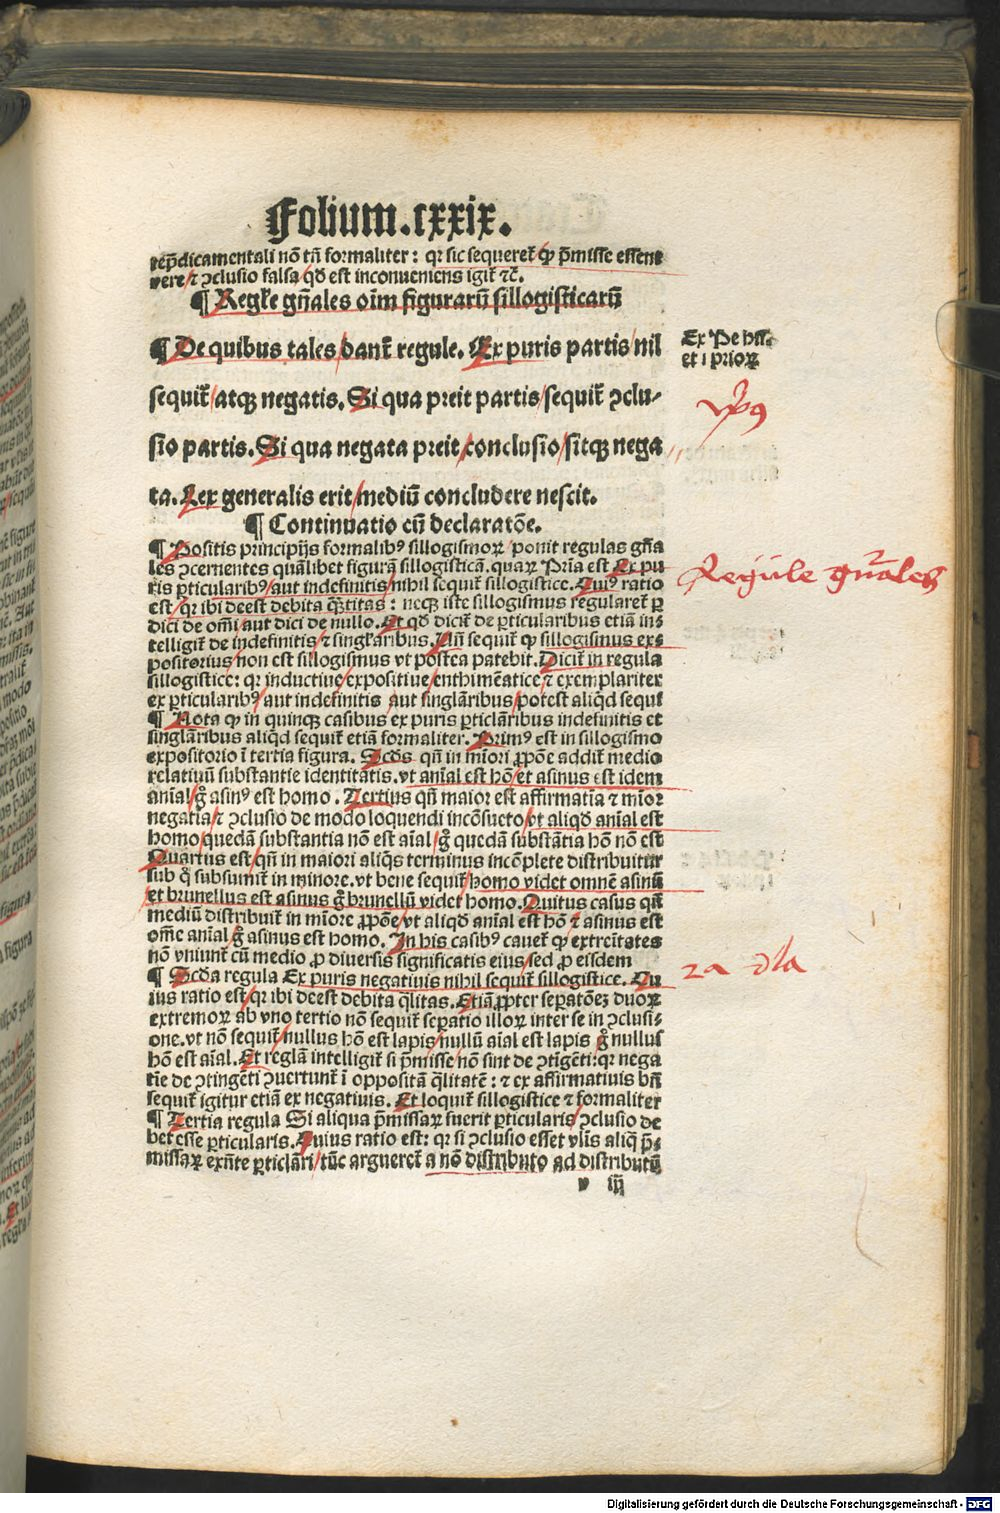 Folium.cxxix.
rep̄dicamentali nō tm̄ formaliter: qr sic sequeret᷑ ꝙ p̄misse essent
vere/⁊ ↄclusio falsa/qd̄ est inconueniens igit᷑ ⁊c̄.
¶ Regl̄e gn̄ales oīm figurarū sillogisticarū
¶ De quibus tales/dant᷑ regule. Ex puris partis/nil
sequit᷑/atqꝫ negatis. Si qua preit partis/sequit᷑ ↄclu-
sio partis. Si qua negata preit/conclusio/sitqꝫ nega
ta. Lex generalis erit/mediū concludere nescit.
Ex Pe hiſ.
et i prioꝝ
¶ Continuatio cū declaratōe.
¶ Positis principijs formalibꝰ sillogismoꝝ/ponit regulas gn̄a
les ↄcernentes quālibet figurā sillogisticā. quaꝝ Pria est Ex pu
ris ꝑticularibꝰ/aut indefinitis/nihil sequit᷑ sillogistice. Cuiꝰ ratio
est/qr ibi deest debita q̄titas: neqꝫ iste sillogismus regularet᷑ ꝑ
dici de om̄i/aut dici de nullo. Et qd̄ dicit᷑ de ꝑticularibus etiā in-
telligit᷑ de indefinitis ⁊ singl̄aribus. Un̄ sequit᷑ ꝙ sillogismus ex-
positorius/non est sillogismus vt postea patebit. Dicit᷑ in regula
sillogistice: qr inductiue/expositiue/enthimēatice ⁊ exemplariter
ex ꝑticularibꝰ/aut indefinitis aut singlāribus/potest aliqd̄ sequi
¶ Nota ꝙ in quinqꝫ casibus ex puris ꝑticlāribus indefinitis et
singlāribus aliqd̄ sequit᷑ etiā formaliter. Primꝰ est in sillogismo
expositorio ī tertia figura. Scd̄s qn̄ in mīori ꝓpōe addit᷑ medio
relatiuū substantie identitatis. vt anīal est hō/et asinus est idem
anīal/gͦ asinꝰ est homo. Tertius qn̄ maior est affirmatīa ⁊ mīor
negatīa/⁊ ↄclusio de modo loquendi incōsueto/vt aliqd̄ anīal est
homo/quedā substantia nō est aīal/gͦ quedā substātia hō nō est
Quartus est/qn̄ in maiori aliq̄s terminus incōplete distribuitur
sub q̄ subsumit᷑ in minore. vt bene sequit᷑/homo videt omnē asinū
et brunellus est asinus gͦ brunellū videt homo. Quitus casus qn̄
mediū distribuit᷑ in mīore ꝓpōe/vt aliqd̄ anīal est hō ⁊ asinus est
om̄e anīal gͦ asinus est homo. In his casibꝰ cauet᷑ ꝙ extrēitates
nō vniunt᷑ cū medio ꝓ diuersis significatis eius/sed ꝓ eisdem
¶ Scd̄a regula Ex puris negatiuis nihil sequit᷑ sillogistice. Cu
ius ratio est/qr ibi deest debita q̄litas. Etiā ꝓpter seꝑatōeꝫ duoꝝ
extremoꝝ ab vno tertio nō sequit᷑ seꝑatio illoꝝ inter se in ↄclusi-
one. vt nō sequit᷑/nullus hō est lapis/nullū aial est lapis gͦ nullus
hō est aīal. Et reglā intelligit᷑ si p̄misse/nō sint de ↄtigēti: qr nega
tīe de ↄtingēti ↄuertunt᷑ ī oppositā q̄litatē: ⁊ ex affirmatiuis bn̄
sequit᷑ igitur etiā ex negatiuis. Et loquit᷑ sillogistice ⁊ formaliter
¶ Tertia regula Si aliqua p̄missaꝝ fuerit ꝑticularis/ↄclusio de
bet esse ꝑticularis. Cuius ratio est: qr si ↄclusio esset vl̄is aliq̄ p̄-
missaꝝ exn̄te ꝑticlāri/tūc argueret᷑ a nō distributo ad distributū
v iij
Regule gn̄ales
2a
Digitalisierung gefördert durch die Deutsche Forschungsgemeinschaft - DFG